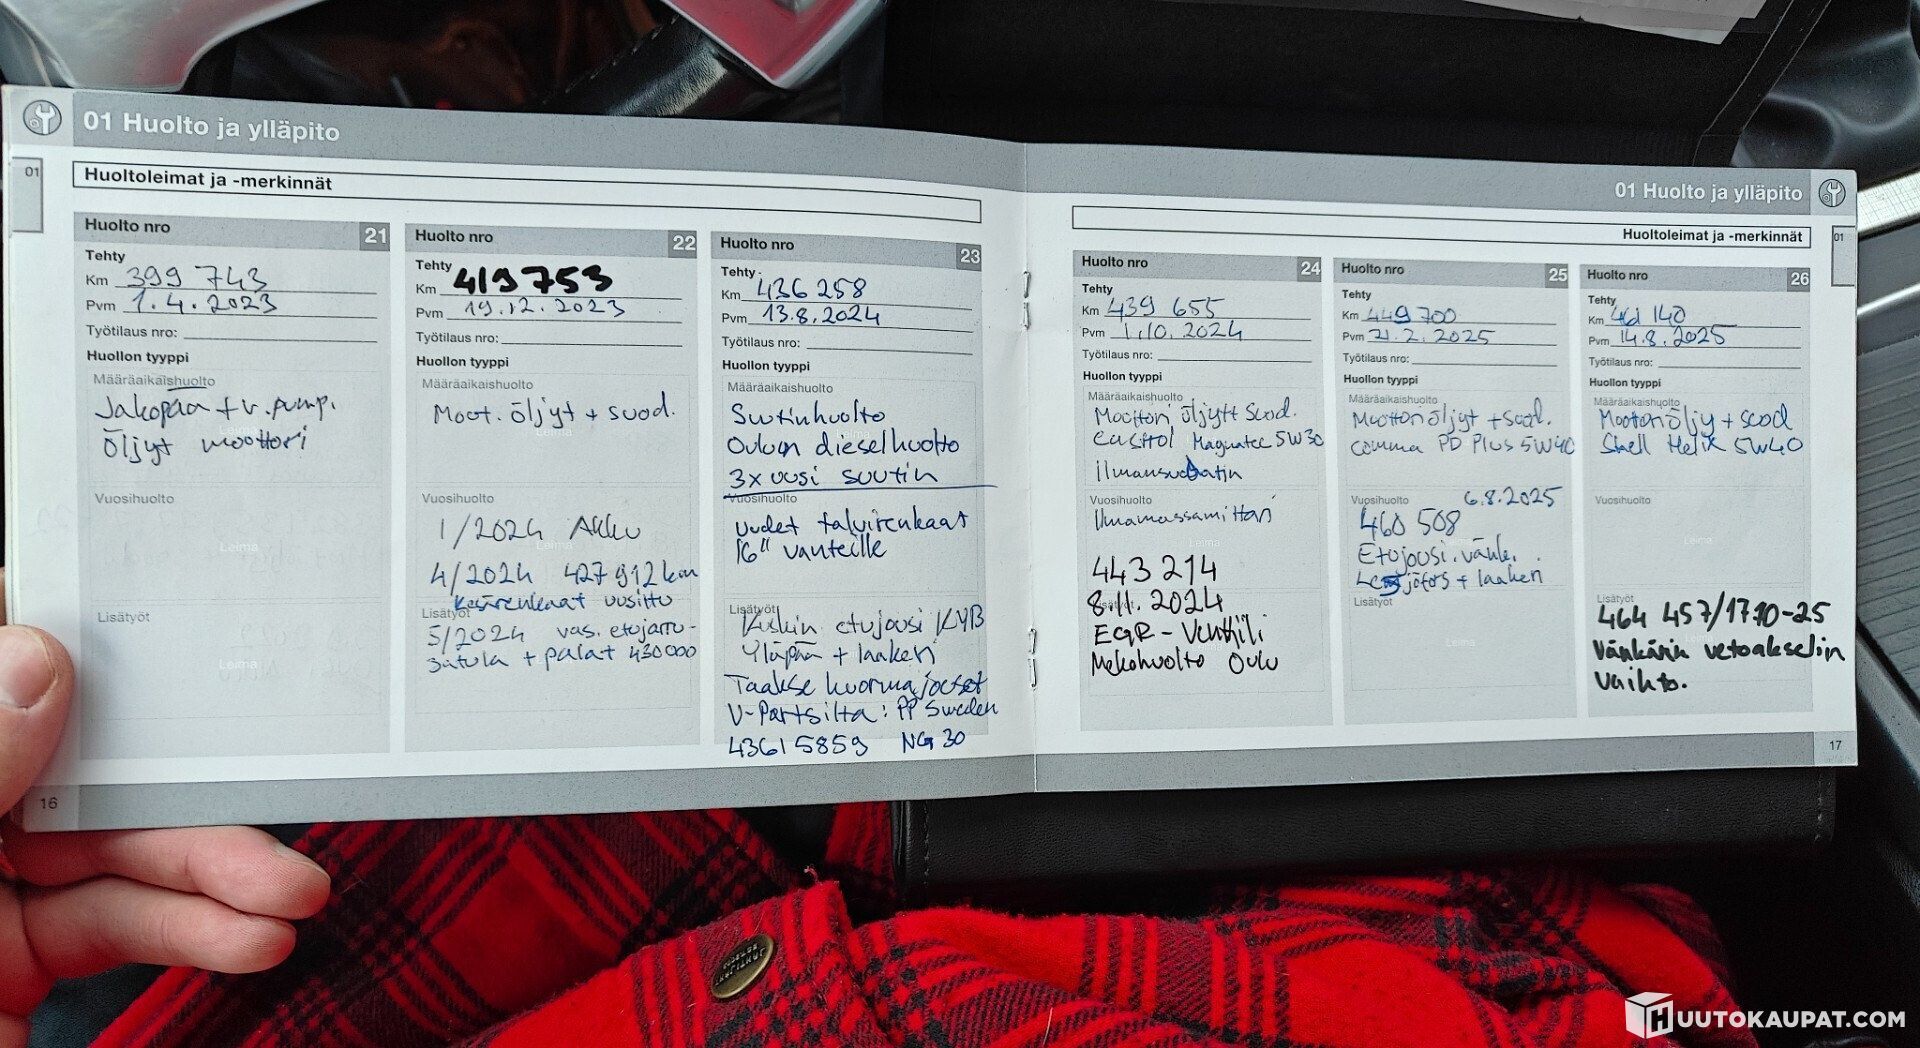 01 Huolto ja ylläpito
01
Huoltoleimat ja -merkinnät
Huolto nro 21
Tehty
Km 399 743
Pvm 1.4.2023
Työtilaus nro:
Huollon tyyppi
Määräaikaishuolto
Jakopää + v.pump.
Öljyt moottori
Leima
Vuosihuolto
Leima
Lisätyöt
Leima
16
Huolto nro 22
Tehty
Km 419 753
Pvm 19.12.2023
Työtilaus nro:
Huollon tyyppi
Määräaikaishuolto
Moot. öljyt + suod.
Leima
Vuosihuolto
1/2024 Akku
Leima
4/2024 427 912 km
Kesärenkaat uusittu
Lisätyöt
5/2024 vas. etujarru-
satula + palat 430000
Leima
Huolto nro 23
Tehty
Km 436 258
Pvm 13.8.2024
Työtilaus nro:
Huollon tyyppi
Määräaikaishuolto
Suutinhuolto
Oulun dieselhuolto
3x uusi suutin
Vuosihuolto
Uudet talvirenkaat
16" vanteille
Lisätyöt
Kuskin etujousi KYB
Yläpää + laakeri
Taakse kuormajouset
V-Partsilta: PP Sweden
43615859 NG 30
01 Huolto ja ylläpito
01
Huoltoleimat ja -merkinnät
Huolto nro 24
Tehty
Km 439 655
Pvm 1.10.2024
Työtilaus nro:
Huollon tyyppi
Määräaikaishuolto
Moottori öljyt+ suod.
Castrol Magnatec 5W30
Ilmansuodatin
Vuosihuolto
Ilmamassamittari
443 214
8.11.2024
Lisätyöt
EGR-Venttiili
Mekohuolto Oulu
Huolto nro 25
Tehty
Km 449 700
Pvm 21.2.2025
Työtilaus nro:
Huollon tyyppi
Määräaikaishuolto
Moottoriöljyt + suod.
comma PD Plus 5W40
Vuosihuolto 6.8.2025
460 508
Leima
Etujousi.vänk.
Lesjöfors + laakeri
Lisätyöt
Leima
Huolto nro 26
Tehty
Km 461 140
Pvm 14.8.2025
Työtilaus nro:
Huollon tyyppi
Määräaikaishuolto
Moottoriöljy + suod
Shell Helix 5W40
Vuosihuolto
Leima
Lisätyöt
464 457/17.10-25
Leima
Vänkärin vetoakselin
vaihto.
17
HUUTOKAUPAT.COM